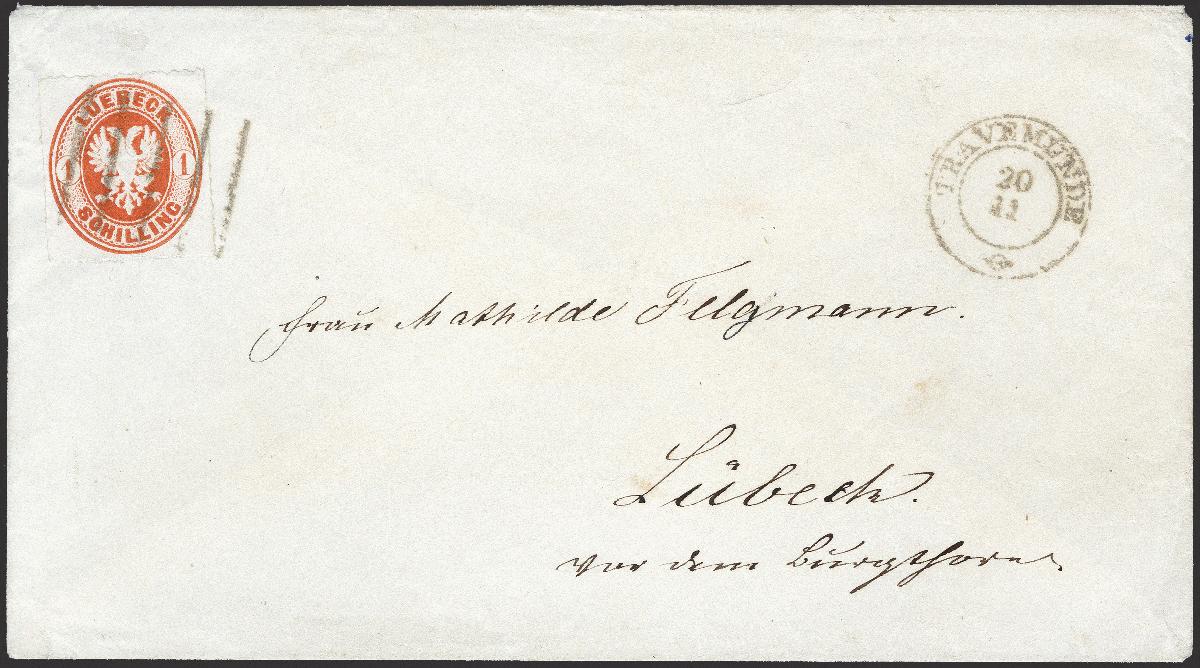 LUEBECK
1 1
SCHILLING
TRAVEMÜNDE
20
11
Frau Mathilde Felgmann.
Lübeck.
vor dem Burgthore.